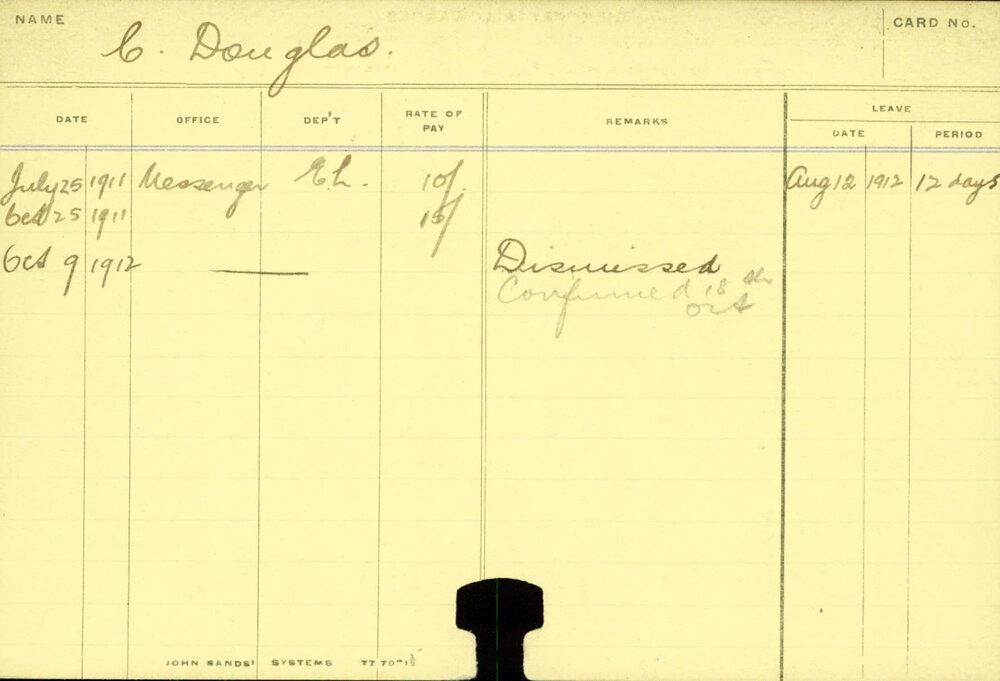 NAME C. Douglas. CARD No.
LEAVE
DATE OFFICE DEP'T RATE OF PAY REMARKS DATE PERIOD
July 25 1911 Messenger E.L. 10/. Aug 12 1912 12 days
Oct 25 1911 15/
Oct 9 1912 Dismissed
Confirmed 18th
Oct
JOHN SANDS' SYSTEMS